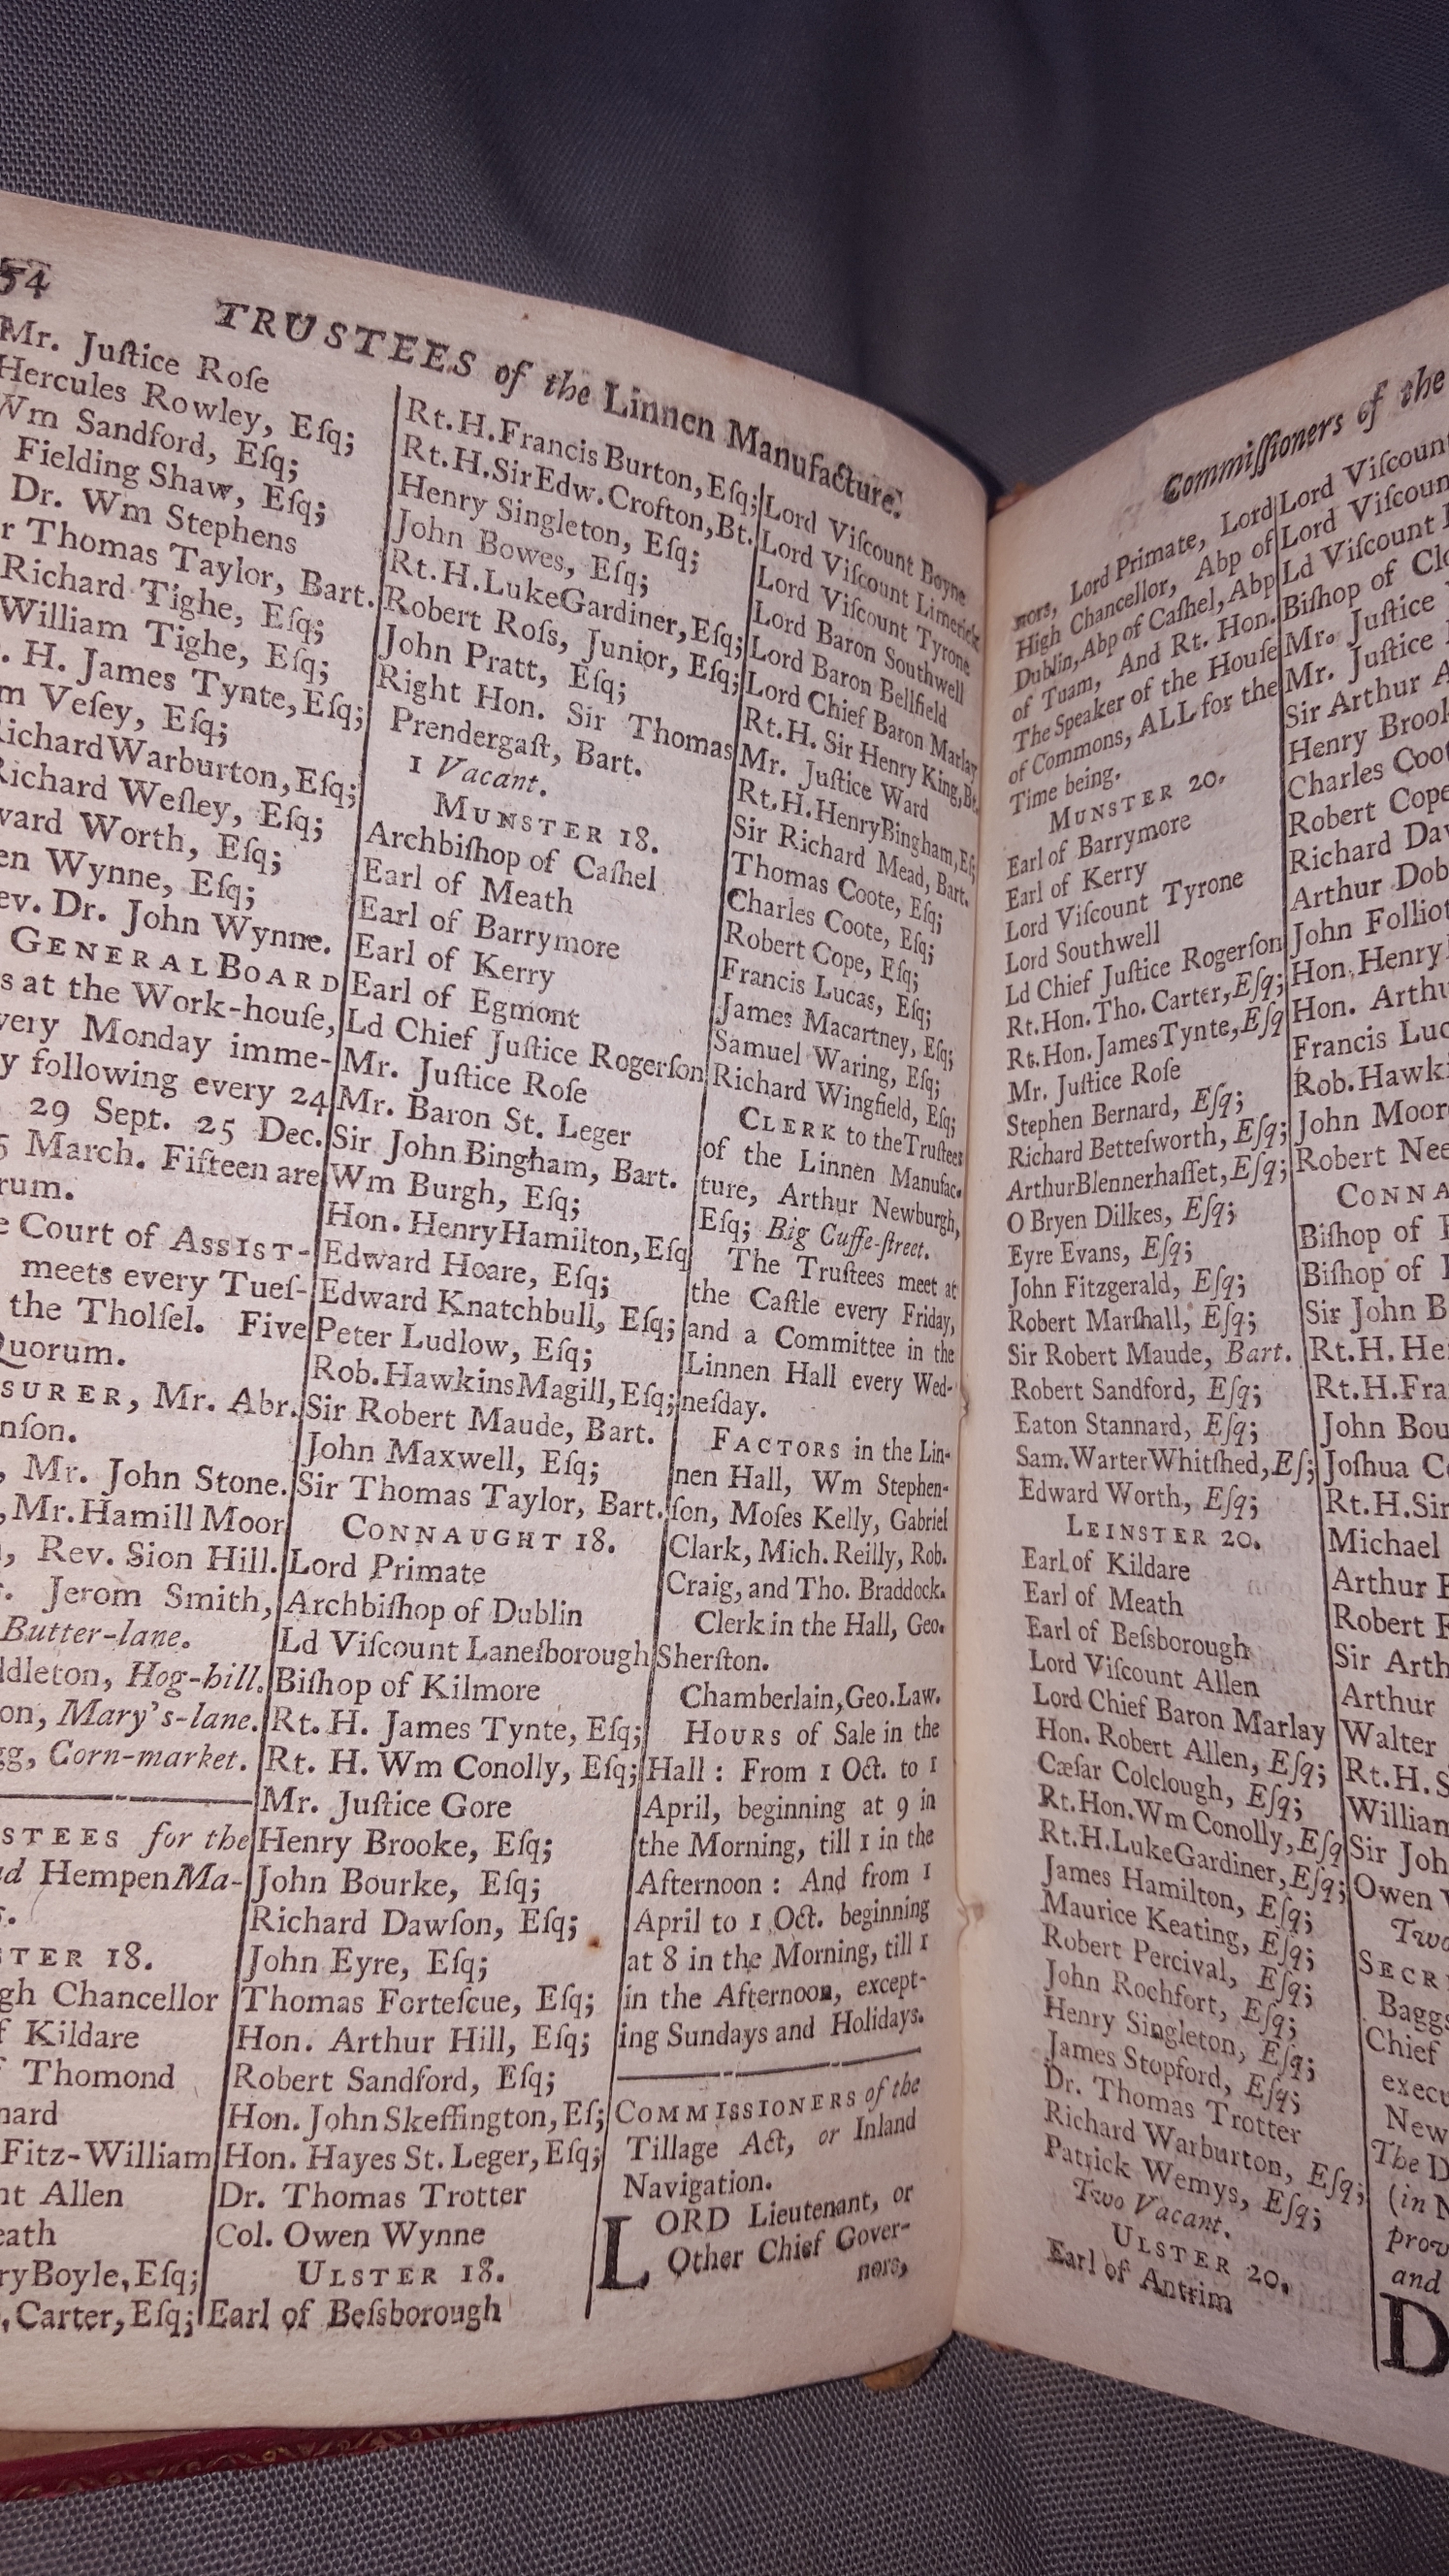 54
TRUSTEES of the Linnen Manufacture.
Mr. Juſtice Roſe
Hercules Rowley, Eſq;
Wm Sandford, Eſq;
Fielding Shaw, Eſq;
Dr. Wm Stephens
r Thomas Taylor, Bart.
Richard Tighe, Eſq;
William Tighe, Eſq;
. H. James Tynte, Eſq;
m Veſey, Eſq;
Richard Warburton, Eſq;
Richard Weſley, Eſq;
ward Worth, Eſq;
en Wynne, Eſq;
ev. Dr. John Wynne.
GENERAL BOARD
s at the Work-houſe,
very Monday imme-
y following every 24
29 Sept. 25 Dec.
5 March. Fifteen are
rum.
e Court of ASSIST-
meets every Tueſ-
the Tholſel. Five
Quorum.
SURER, Mr. Abr.
nſon.
, Mr. John Stone.
, Mr. Hamill Moor
, Rev. Sion Hill.
. Jerom Smith,
Butter-lane.
ddleton, Hog-hill.
on, Mary's-lane.
gg, Corn-market.
STEES for the
d Hempen Ma-
STER 18.
gh Chancellor
f Kildare
f Thomond
nard
Fitz-William
nt Allen
eath
ry Boyle, Eſq;
. Carter, Eſq;
Rt. H. Francis Burton, Eſq;
Rt. H. Sir Edw. Crofton, Bt.
Henry Singleton, Eſq;
John Bowes, Eſq;
Rt. H. Luke Gardiner, Eſq;
Robert Roſs, Junior, Eſq;
John Pratt, Eſq;
Right Hon. Sir Thomas
Prendergaſt, Bart.
1 Vacant.
MUNSTER 18.
Archbiſhop of Caſhel
Earl of Meath
Earl of Barrymore
Earl of Kerry
Earl of Egmont
Ld Chief Juſtice Rogerſon
Mr. Juſtice Roſe
Mr. Baron St. Leger
Sir John Bingham, Bart.
Wm Burgh, Eſq;
Hon. Henry Hamilton, Eſq
Edward Hoare, Eſq;
Edward Knatchbull, Eſq;
Peter Ludlow, Eſq;
Rob. Hawkins Magill, Eſq;
Sir Robert Maude, Bart.
John Maxwell, Eſq;
Sir Thomas Taylor, Bart.
CONNAUGHT 18.
Lord Primate
Archbiſhop of Dublin
Ld Viſcount Laneſborough
Biſhop of Kilmore
Rt. H. James Tynte, Eſq;
Rt. H. Wm Conolly, Eſq;
Mr. Juſtice Gore
Henry Brooke, Eſq;
John Bourke, Eſq;
Richard Dawſon, Eſq;
John Eyre, Eſq;
Thomas Forteſcue, Eſq;
Hon. Arthur Hill, Eſq;
Robert Sandford, Eſq;
Hon. John Skeffington, Eſ;
Hon. Hayes St. Leger, Eſq;
Dr. Thomas Trotter
Col. Owen Wynne
ULSTER 18.
Earl of Beſsborough
Lord Viſcount Boyne
Lord Viſcount Limerick
Lord Viſcount Tyrone
Lord Baron Southwell
Lord Baron Bellfield
Lord Chief Baron Marlay
Rt. H. Sir Henry King, Bt.
Mr. Juſtice Ward
Rt. H. Henry Bingham, Eſ;
Sir Richard Mead, Bart.
Thomas Coote, Eſq;
Charles Coote, Eſq;
Robert Cope, Eſq;
Francis Lucas, Eſq;
James Macartney, Eſq;
Samuel Waring, Eſq;
Richard Wingfield, Eſq;
CLERK to the Truſtees
of the Linnen Manufac-
ture, Arthur Newburgh,
Eſq; Big Cuffe-ſtreet.
The Truſtees meet at
the Caſtle every Friday,
and a Committee in the
Linnen Hall every Wed-
neſday.
FACTORS in the Lin-
nen Hall, Wm Stephen-
ſon, Moſes Kelly, Gabriel
Clark, Mich. Reilly, Rob.
Craig, and Tho. Braddock.
Clerk in the Hall, Geo.
Sherſton.
Chamberlain, Geo. Law.
HOURS of Sale in the
Hall : From 1 Oct. to 1
April, beginning at 9 in
the Morning, till 1 in the
Afternoon : And from 1
April to 1 Oct. beginning
at 8 in the Morning, till 1
in the Afternoon, except-
ing Sundays and Holidays.
COMMISSIONERS of the
Tillage Act, or Inland
Navigation.
LORD Lieutenant, or
Other Chief Gover-
nors,
Commiſſioners of the
nors, Lord Primate, Lord
High Chancellor, Abp of
Dublin, Abp of Caſhel, Abp
of Tuam, And Rt. Hon.
The Speaker of the Houſe
of Commons, ALL for the
Time being.
MUNSTER 20.
Earl of Barrymore
Earl of Kerry
Lord Viſcount Tyrone
Lord Southwell
Ld Chief Juſtice Rogerſon
Rt. Hon. Tho. Carter, Eſq;
Rt. Hon. James Tynte, Eſq
Mr. Juſtice Roſe
Stephen Bernard, Eſq;
Richard Betteſworth, Eſq;
Arthur Blennerhaſſet, Eſq;
O Bryen Dilkes, Eſq;
Eyre Evans, Eſq;
John Fitzgerald, Eſq;
Robert Marſhall, Eſq;
Sir Robert Maude, Bart.
Robert Sandford, Eſq;
Eaton Stannard, Eſq;
Sam. Warter Whitſhed, Eſ;
Edward Worth, Eſq;
LEINSTER 20.
Earl of Kildare
Earl of Meath
Earl of Beſsborough
Lord Viſcount Allen
Lord Chief Baron Marlay
Hon. Robert Allen, Eſq;
Cæſar Colclough, Eſq;
Rt. Hon. Wm Conolly, Eſq
Rt. H. Luke Gardiner, Eſq;
James Hamilton, Eſq;
Maurice Keating, Eſq;
Robert Percival, Eſq;
John Rochfort, Eſq;
Henry Singleton, Eſq;
James Stopford, Eſq;
Dr. Thomas Trotter
Richard Warburton, Eſq;
Patrick Wemys, Eſq;
Two Vacant.
ULSTER 20.
Earl of Antrim
Lord Viſcoun
Lord Viſcoun
Ld Viſcount
Biſhop of Clo
Mr. Juſtice
Mr. Juſtice
Sir Arthur A
Henry Brook
Charles Coo
Robert Cope
Richard Da
Arthur Dob
John Folliot
Hon. Henry
Hon. Arthu
Francis Luc
Rob. Hawk
John Moor
Robert Nee
CONNA
Biſhop of
Biſhop of
Sir John B
Rt. H. He
Rt. H. Fra
John Bou
Joſhua C
Rt. H. Sir
Michael
Arthur
Robert
Sir Arth
Arthur
Walter
Rt. H. S
William
Sir Joh
Owen
Two
SECR
Baggs
Chief
execu
New
The D
(in
prov
and
D